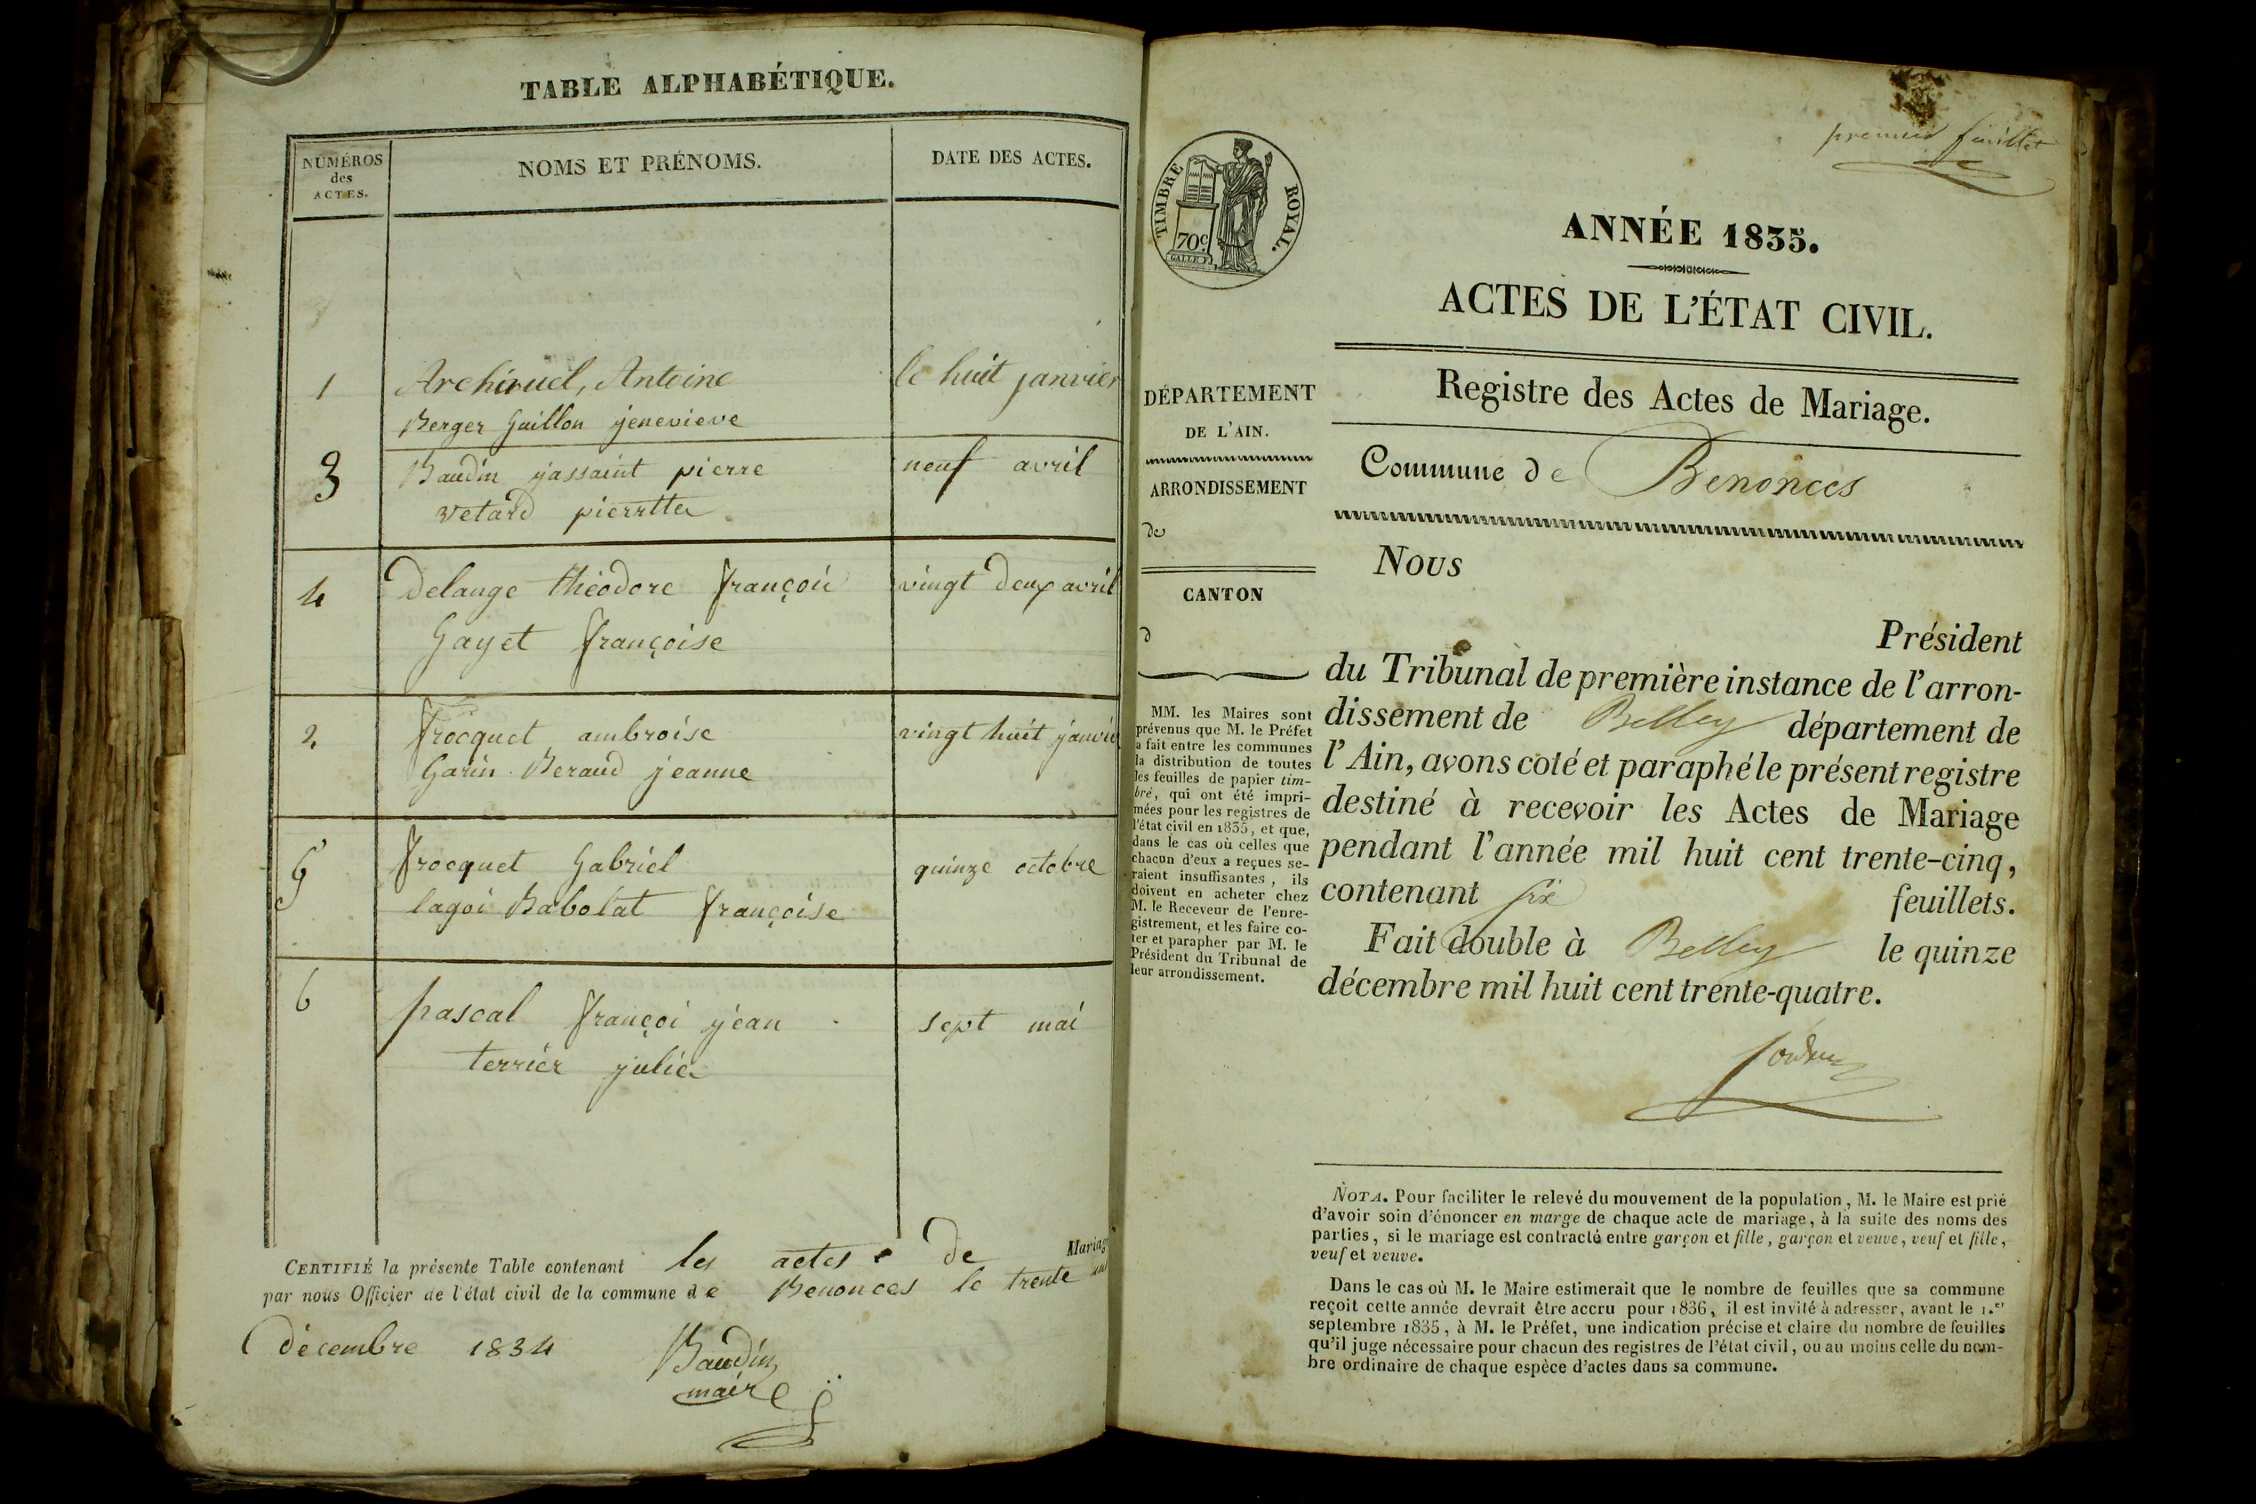 TABLE ALPHABÉTIQUE.
NUMÉROS
des
ACTES.
NOMS ET PRÉNOMS.
DATE DES ACTES.
1 Archiruel, Antoine le huit janvier
Berger Guillon jenevieve
3 Baudin jassaint pierre neuf avril
vetard pierrtte
4 Delange théodore françois vingt deux avril
Gayet françoise
2 frocquet ambroise vingt huit janvier
Garin Beraud jeanne
5 frocquet Gabriel quinze octobre
lagoi Babolat françoise
6 pascal françoi jean sept mai
terrier julie
CERTIFIÉ la présente Table contenant les actes de Mariag
par nous Officier de l'état civil de la commune de Benonces le trente un
décembre 1834
Baudin
maire
premier feuillet
TIMBRE ROYAL.
70c.
GALLE F.
ANNÉE 1835.
ACTES DE L'ÉTAT CIVIL.
Registre des Actes de Mariage.
Commune de Benonces
DÉPARTEMENT
DE L'AIN.
ARRONDISSEMENT
de
CANTON
d
MM. les Maires sont
prévenus que M. le Préfet
a fait entre les communes
la distribution de toutes
les feuilles de papier tim-
bré, qui ont été impri-
mées pour les registres de
l'état civil en 1835, et que,
dans le cas où celles que
chacun d'eux a reçues se-
raient insuffisantes, ils
doivent en acheter chez
M. le Receveur de l'enre-
gistrement, et les faire co-
ter et parapher par M. le
Président du Tribunal de
leur arrondissement.
Nous
Président
du Tribunal de première instance de l'arron-
dissement de Belley département de
l'Ain, avons coté et paraphé le présent registre
destiné à recevoir les Actes de Mariage
pendant l'année mil huit cent trente-cinq,
contenant six feuillets.
Fait double à Belley le quinze
décembre mil huit cent trente-quatre.
NOTA. Pour faciliter le relevé du mouvement de la population, M. le Maire est prié
d'avoir soin d'énoncer en marge de chaque acte de mariage, à la suite des noms des
parties, si le mariage est contracté entre garçon et fille, garçon et veuve, veuf et fille,
veuf et veuve.
Dans le cas où M. le Maire estimerait que le nombre de feuilles que sa commune
reçoit cette année devrait être accru pour 1836, il est invité à adresser, avant le 1.er
septembre 1835, à M. le Préfet, une indication précise et claire du nombre de feuilles
qu'il juge nécessaire pour chacun des registres de l'état civil, ou au moins celle du nom-
bre ordinaire de chaque espèce d'actes dans sa commune.